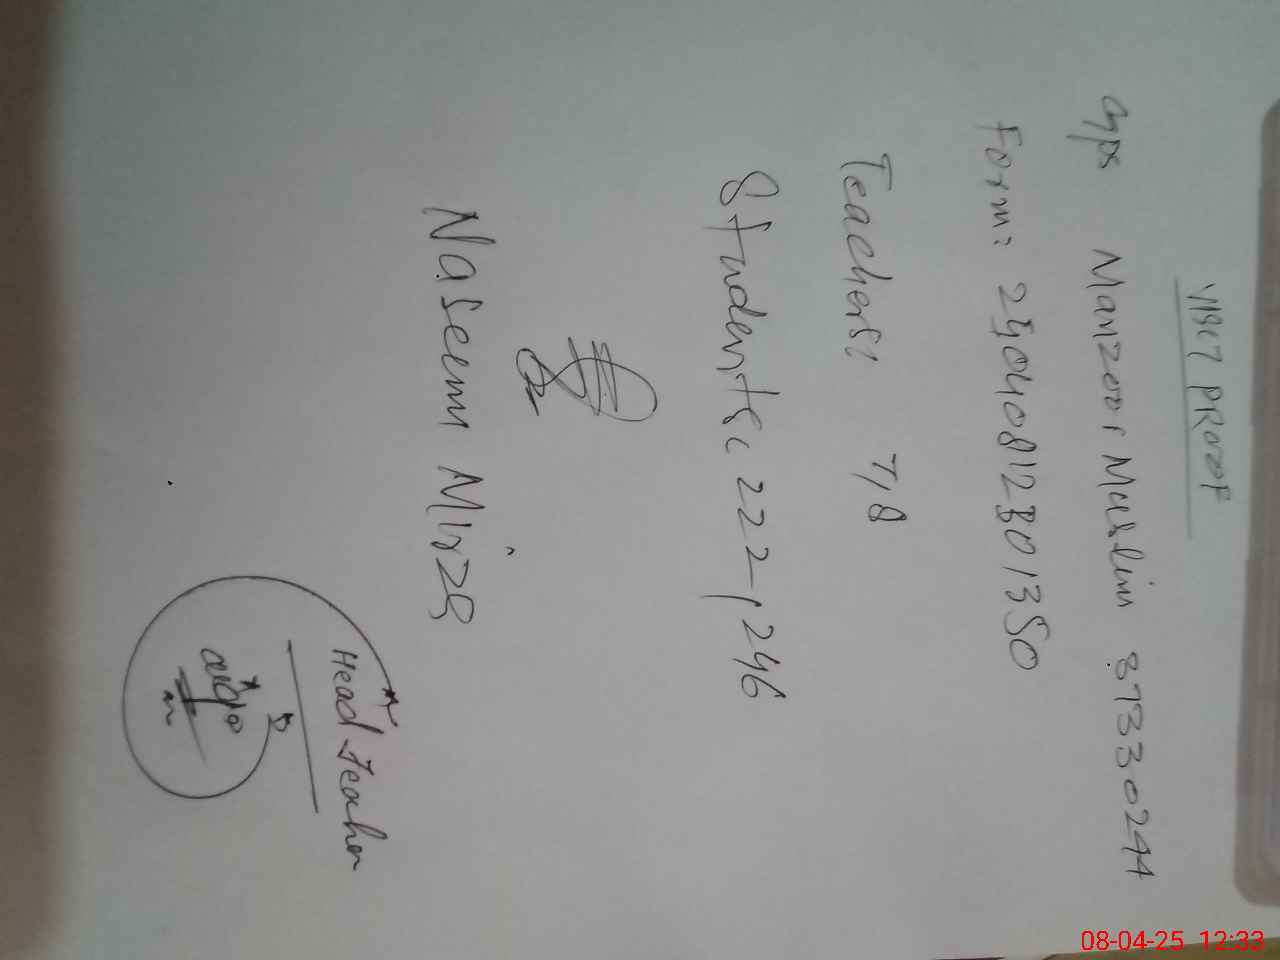 VISIT PROOF
GPS Manzoor Muslim 87330244
Form: 25040812301350
Teachers: 7/8
Students: 222/246
Naseem Mirza
Head Teacher
08-04-25 12:33